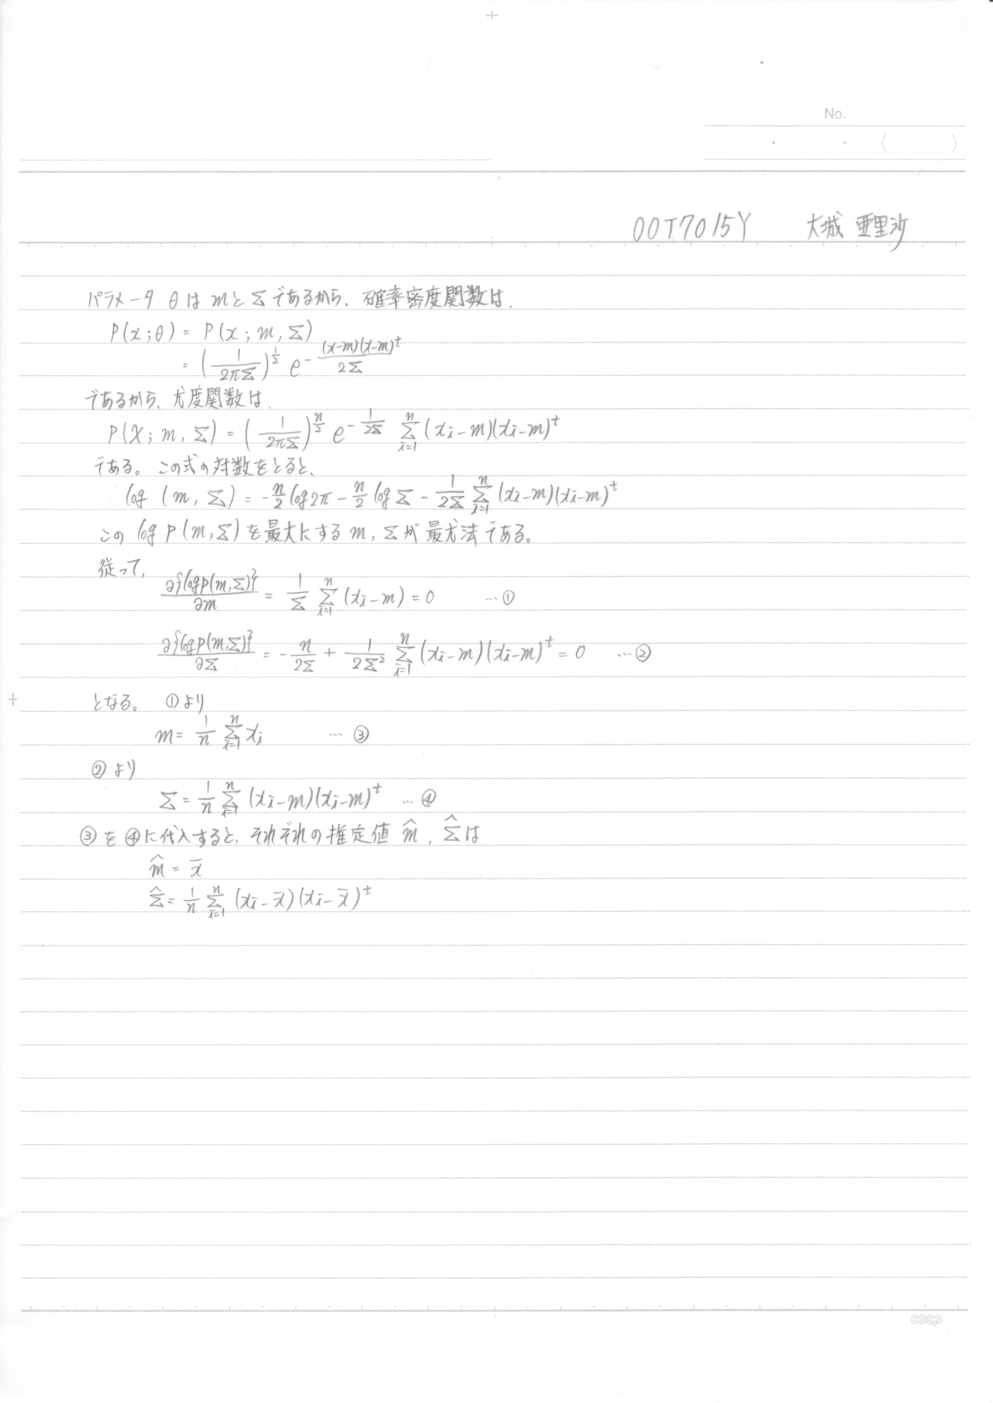 No.
( )
00T7015Y 大城 亜里沙
パラメータ θ は m と Σ であるから、確率密度関数は、
P(x;θ) = P(x; m, Σ)
= (1/2πΣ)^{1/2} e^{-(x-m)(x-m)^t/2Σ}
であるから、尤度関数は、
P(X; m, Σ) = (1/2πΣ)^{n/2} e^{-1/2Σ} Σ_{i=1}^{n} (x_i-m)(x_i-m)^t
である。この式の対数をとると、
log (m, Σ) = -n/2 log2π - n/2 log Σ - 1/2Σ Σ_{i=1}^{n} (x_i-m)(x_i-m)^t
この log P(m,Σ) を最大にする m, Σ が最尤法である。
従って、
∂{log P(m,Σ)}/∂m = 1/Σ Σ_{i=1}^{n} (x_i-m) = 0 …①
∂{log P(m,Σ)}/∂Σ = -n/2Σ + 1/2Σ² Σ_{i=1}^{n} (x_i-m)(x_i-m)^t = 0 …②
となる。 ①より
m = 1/n Σ_{i=1}^{n} x_i …③
②より
Σ = 1/n Σ_{i=1}^{n} (x_i-m)(x_i-m)^t …④
③を④に代入すると、それぞれの推定値 m̂, Σ̂ は
m̂ = x̄
Σ̂ = 1/n Σ_{i=1}^{n} (x_i-x̄)(x_i-x̄)^t